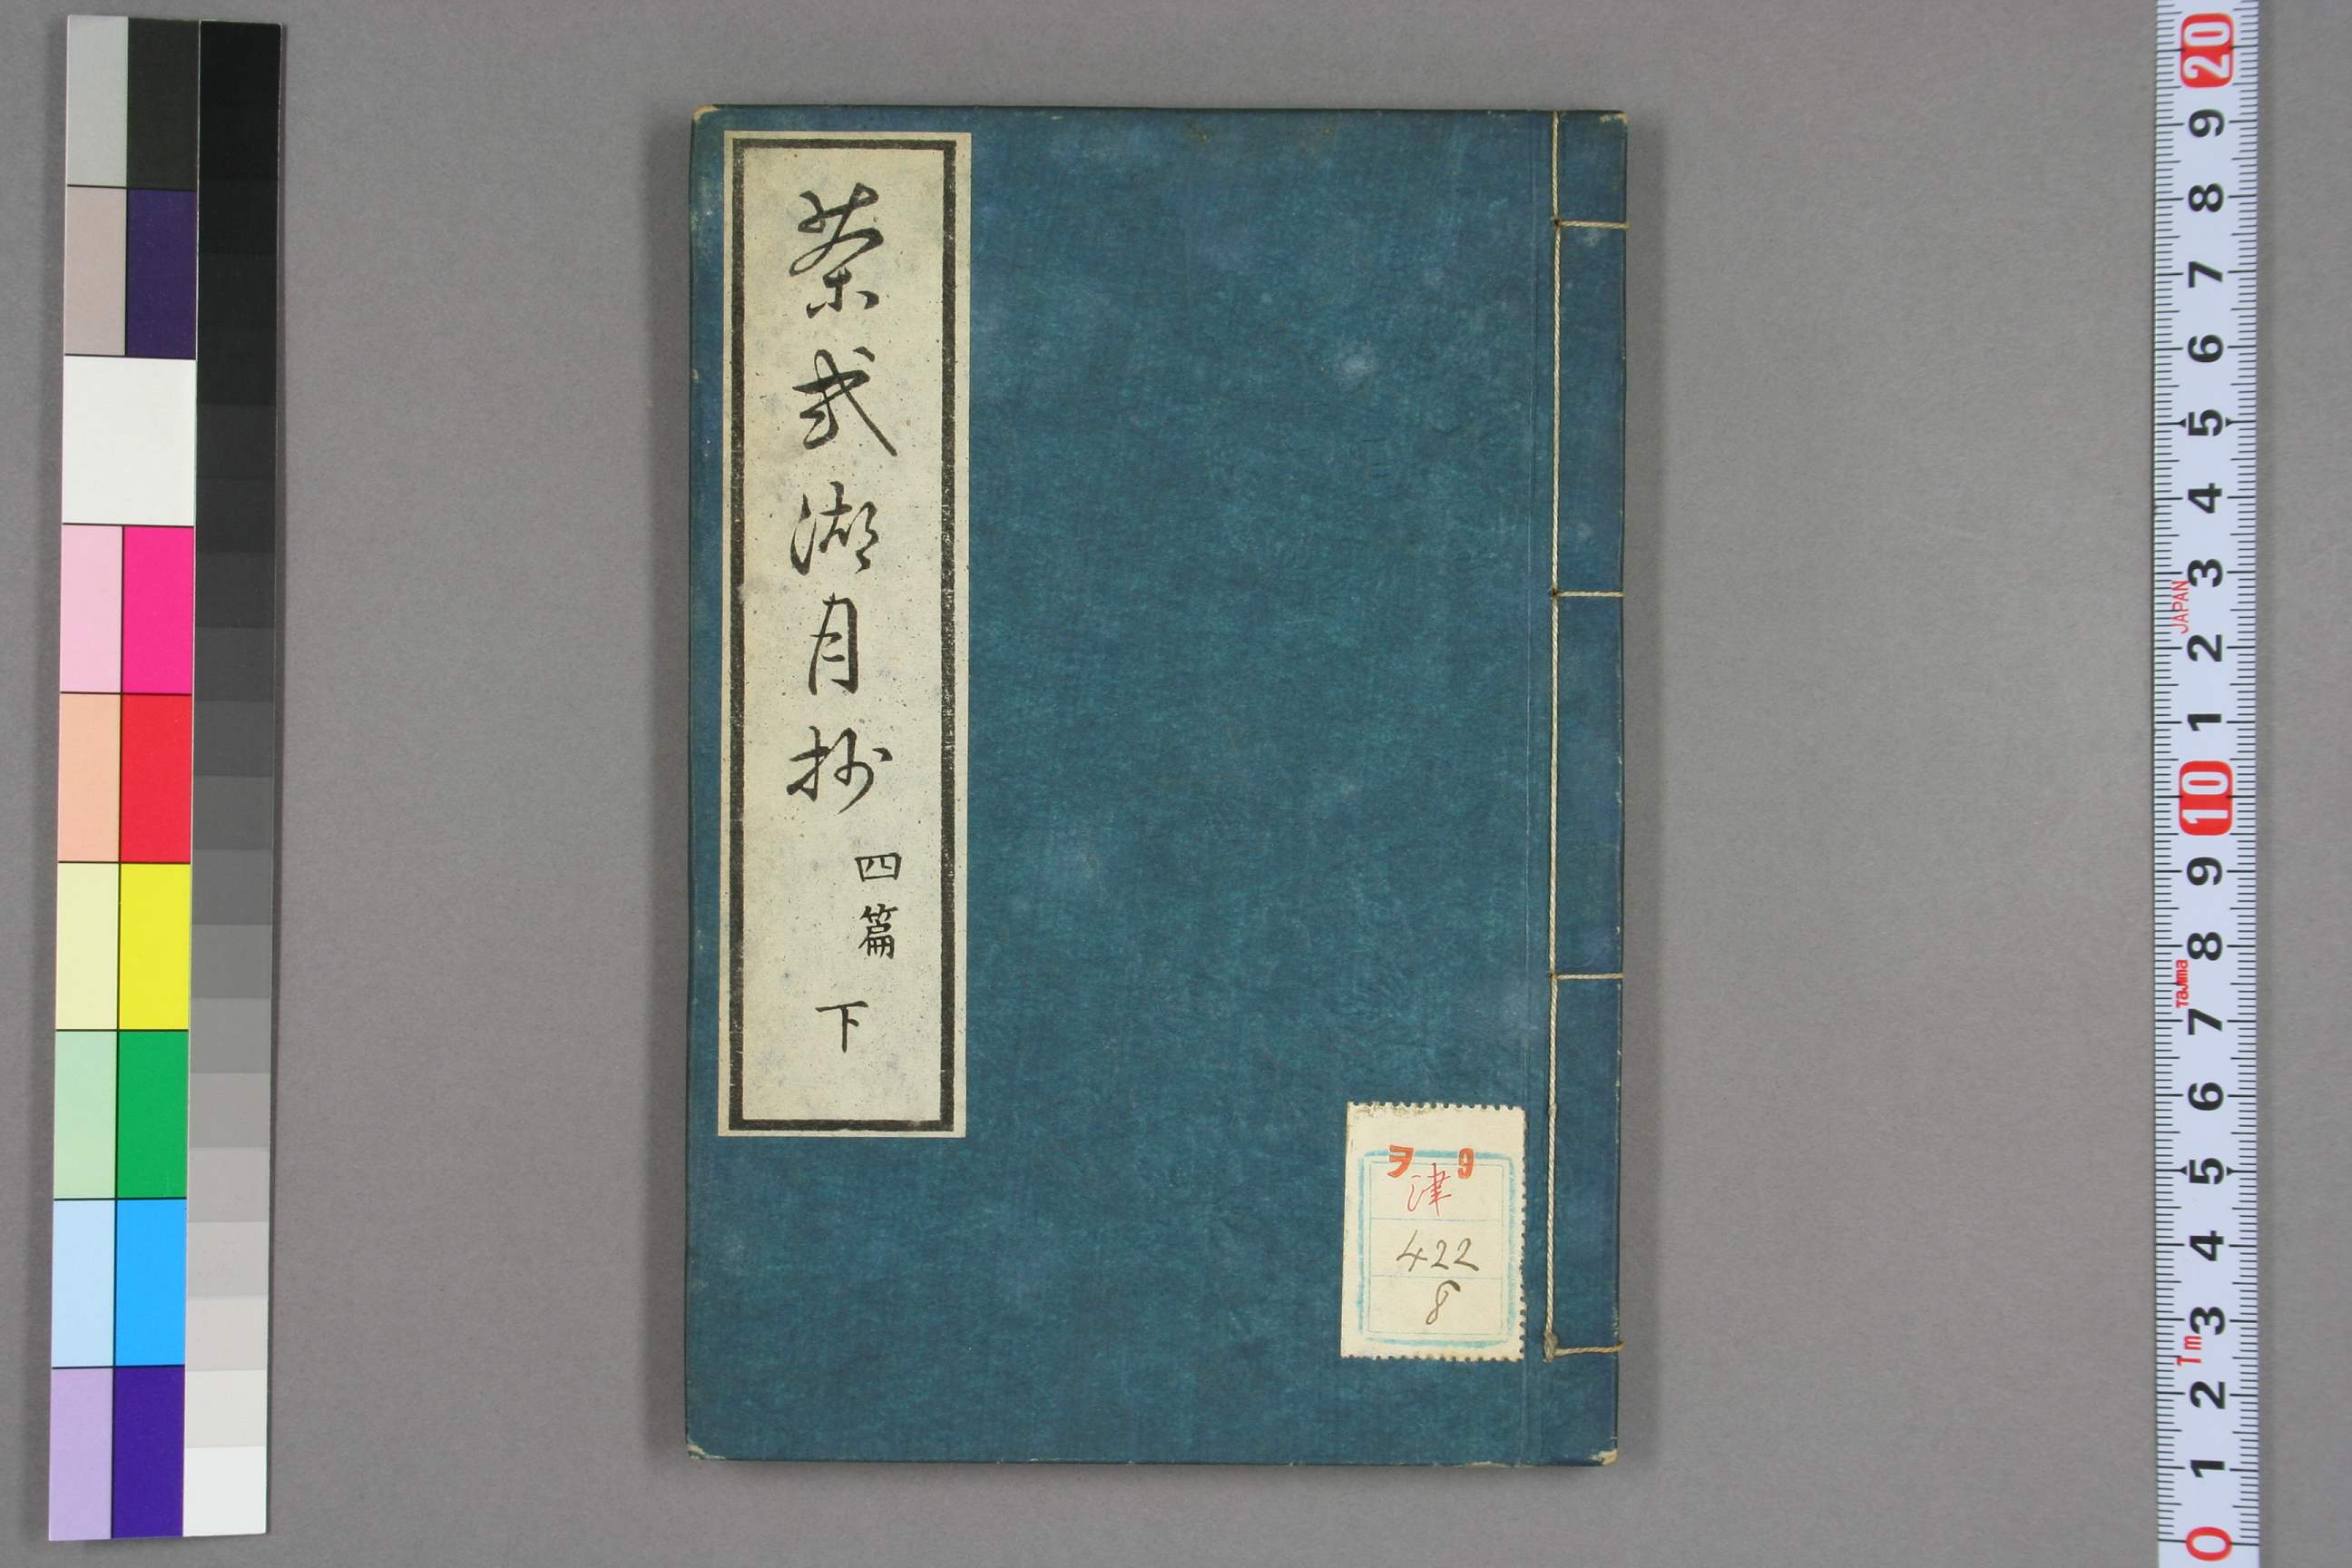 茶式湖月抄
四篇
下
ヲ 9
津
422
8
20
9
8
7
6
5
4
3
2
1
10
9
8
7
6
5
4
3
2
1
0
JAPAN
Tajima
Tm